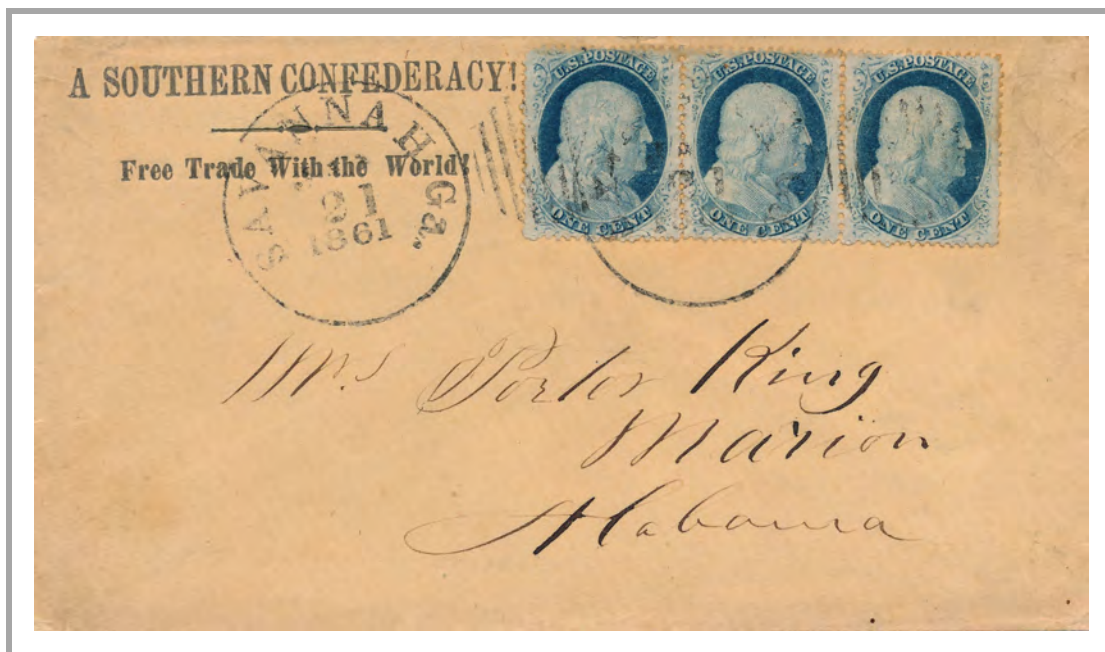 A SOUTHERN CONFEDERACY!
Free Trade With the World!
SAVANNAH Ga.
21
1861
U.S. POSTAGE
ONE CENT
U.S. POSTAGE
ONE CENT
U.S. POSTAGE
ONE CENT
Mrs Porter King
Marion
Alabama